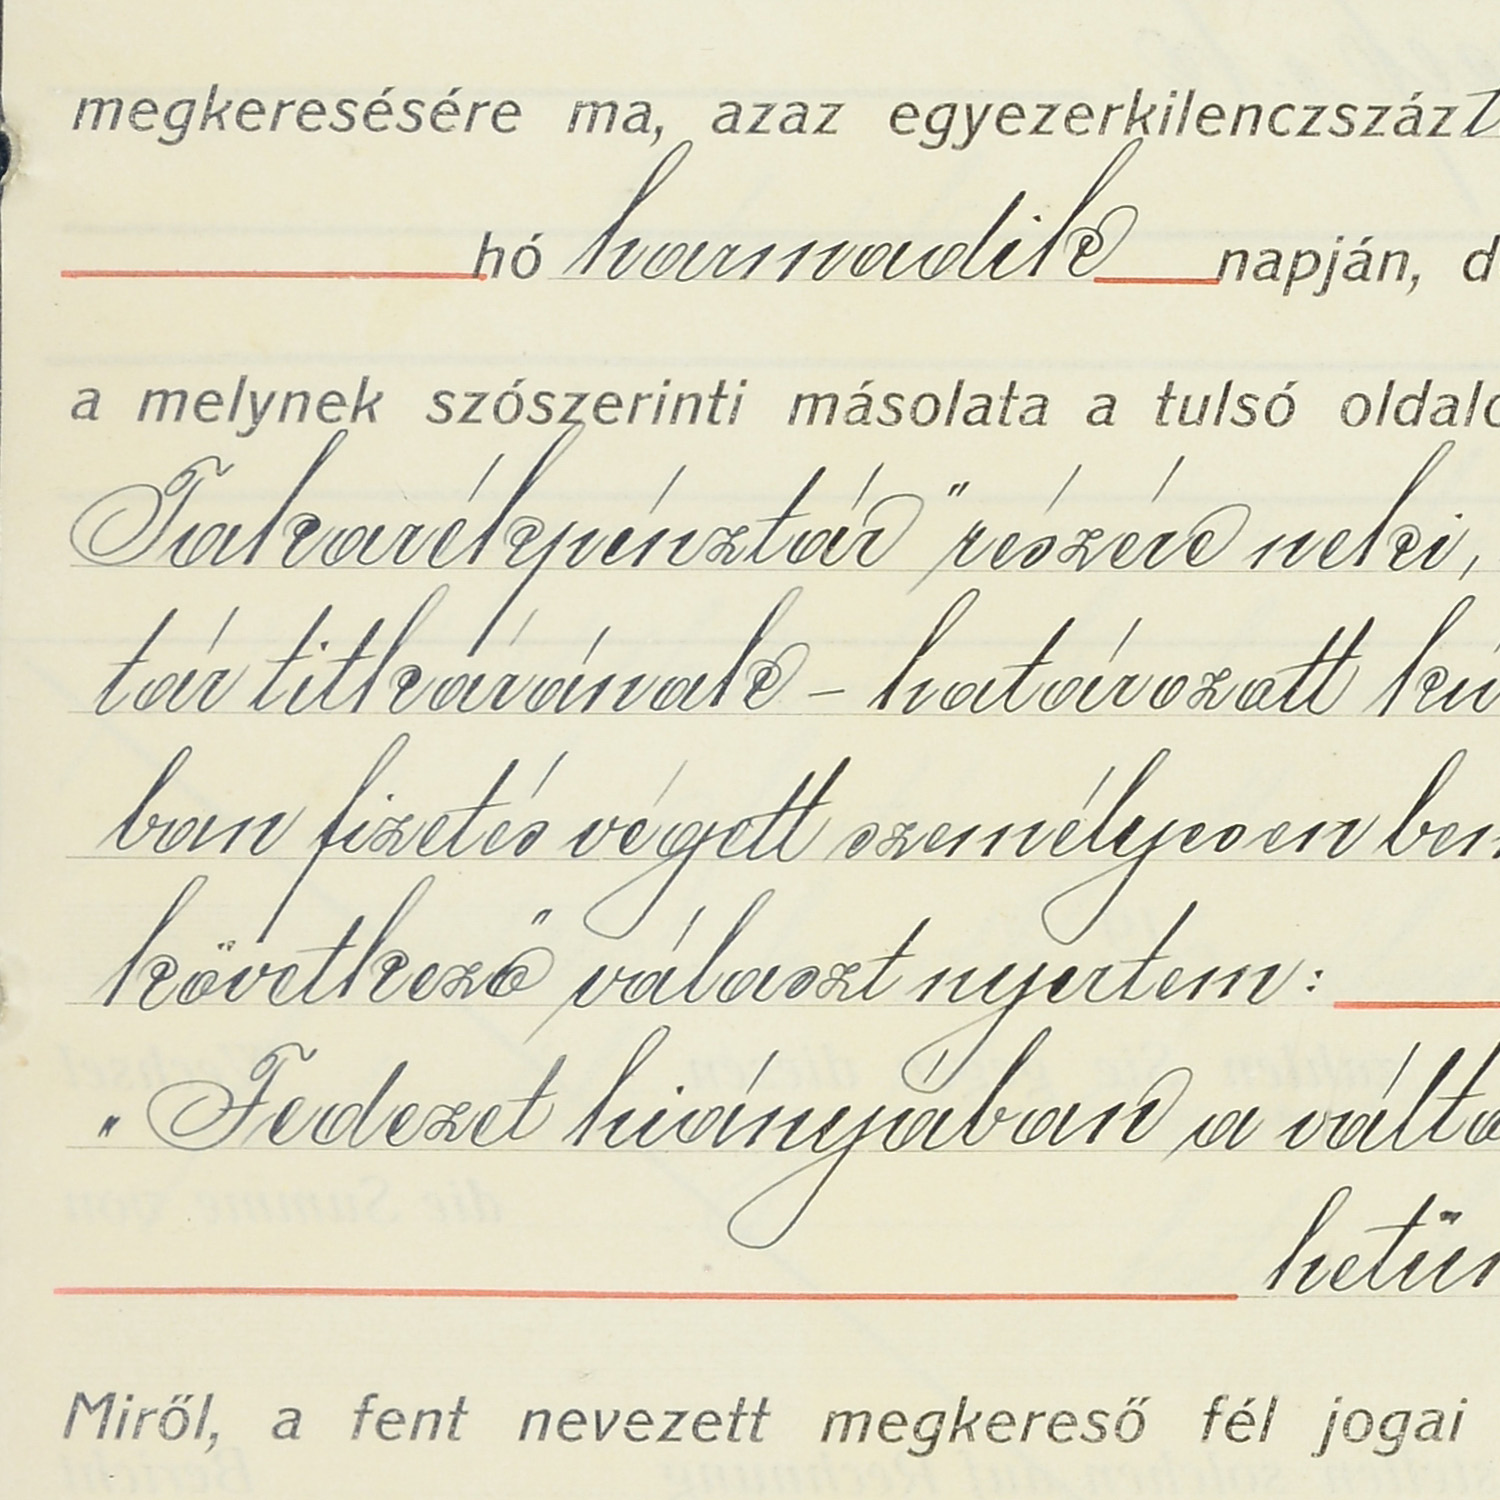 megkeresésére ma, azaz egyezerkilenczszáz
hó harmadik napján, d
a melynek szószerinti másolata a tulsó oldalo
Takarékpénztár" részére neki,
tár titkárának – határozott kü
ban fizetés végett személyesen ben
következő választ nyertem:
„Fedezet hiányában a válto
hetün
Miről, a fent nevezett megkereső fél jogai